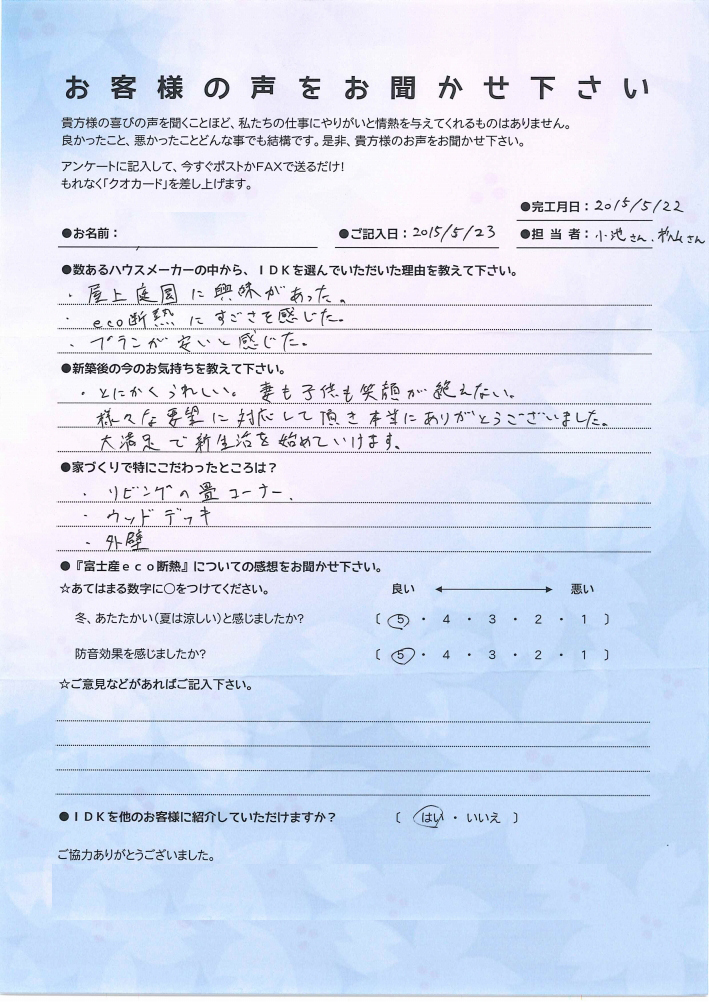 お客様の声をお聞かせ下さい
貴方様の喜びの声を聞くことほど、私たちの仕事にやりがいと情熱を与えてくれるものはありません。
良かったこと、悪かったことどんな事でも結構です。是非、貴方様のお声をお聞かせ下さい。
アンケートに記入して、今すぐポストかFAXで送るだけ!
もれなく「クオカード」を差し上げます。
●完工月日:2015/5/22
●お名前: ●ご記入日:2015/5/23 ●担当者:小池さん、杉山さん
●数あるハウスメーカーの中から、IDKを選んでいただいた理由を教えて下さい。
・屋上庭園に興味があった。
・eco断熱にすごさを感じた。
・プランが安いと感じた。
●新築後の今のお気持ちを教えて下さい。
・とにかくうれしい。妻も子供も笑顔が絶えない。
様々な要望に対応して頂き本当にありがとうございました。
大満足で新生活を始めていけます。
●家づくりで特にこだわったところは?
・リビングの畳コーナー、
・ウッドデッキ
・外壁
●『富士産eco断熱』についての感想をお聞かせ下さい。
☆あてはまる数字に○をつけてください。 良い 悪い
冬、あたたかい(夏は涼しい)と感じましたか? 〔 5 ・ 4 ・ 3 ・ 2 ・ 1 〕
防音効果を感じましたか? 〔 5 ・ 4 ・ 3 ・ 2 ・ 1 〕
☆ご意見などがあればご記入下さい。
●IDKを他のお客様に紹介していただけますか? 〔 はい ・ いいえ 〕
ご協力ありがとうございました。